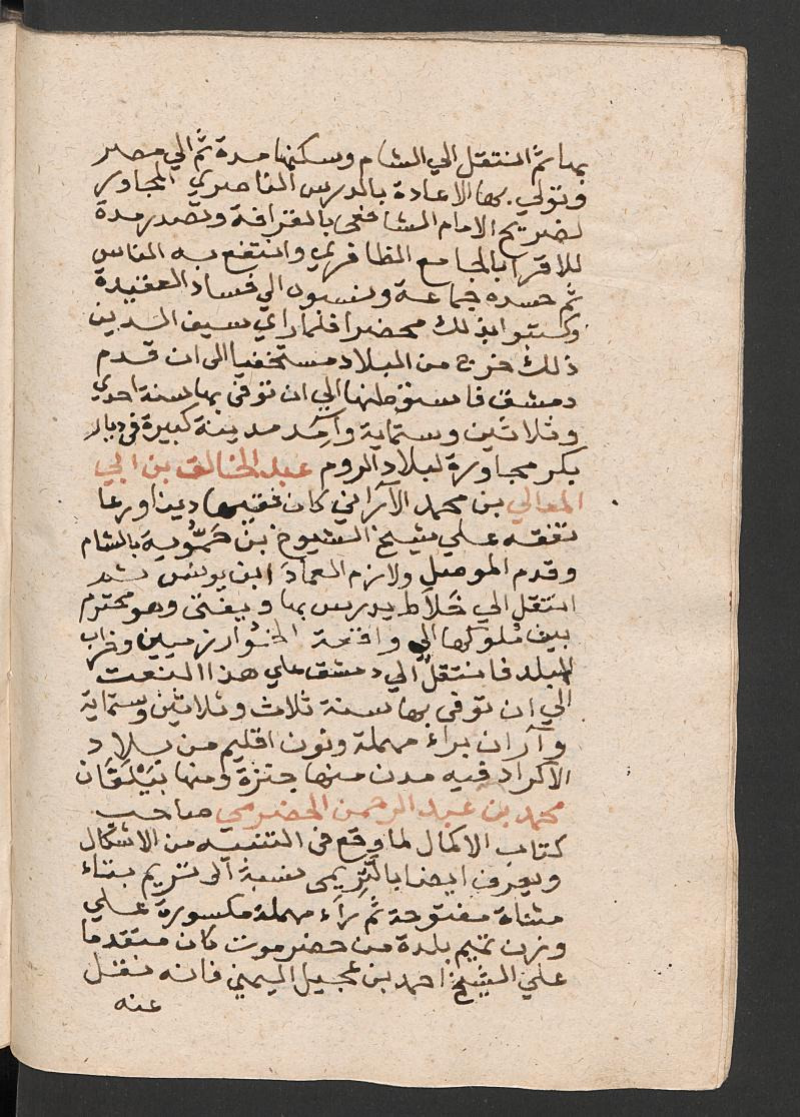 بها ثمَّ انتقل الي الشام وسكنها مدة ثمَّ الي مصر
وتولي بها الاعادة بالدرس الناصري المجاور
لضريح الامام الشافعى بالقرافة وتصدر مدة
للاقرا بالجامع الظافري وانتفع به الناس
ثم حسده جماعة ونسبوه الي فساد العقيدة
وكتبوا بذلك محضرا فلما راي سيف الدين
ذلك خرج من البلاد مستخفيا الى ان قدم
دمشق فاستوطنها الي ان توفى بها سنة احدي
وثلاثين وستماية وآمد مدينة كبيرة فى ديار
بكر مجاورة لبلاد الروم عبد الخالق بن ابي
المعالي بن محمد الآراني كان فقيها دينا ورعا
تفقه علي شيخ الشيوخ بن حَمُّوية بالشام
وقدم الموصل ولازم العماد ابن يونس ثم
انتقل الي خلاط يدرس بها ويفتى وهو محترم
بين ملوكها الي واقعة الخوارزميين وخراب
البلد فانتقل الي دمشق علي هذا النعت
الي ان توفي بها سنة ثلاث وثلاثين وستماية
وآران براء مهملة ونون اقليم من بلاد
الاكراد فيه مدن منها جنزة ومنها بَيْلَقَان
محمد بن عبد الرحمن الحضرمي صاحب
كتاب الاكمال لما وقع فى التنبيه من الاشكال
ويعرف ايضا بالتَّرِيمى نسبة الى تريم بتاء
مثناة مفتوحة ثمَّ رَاء مهملة مكسورة علي
وزن تميم بلدة من حضرموت كان متقدما
علي الشيخ احمد بن عجيل اليمني فانه نقل
عنه